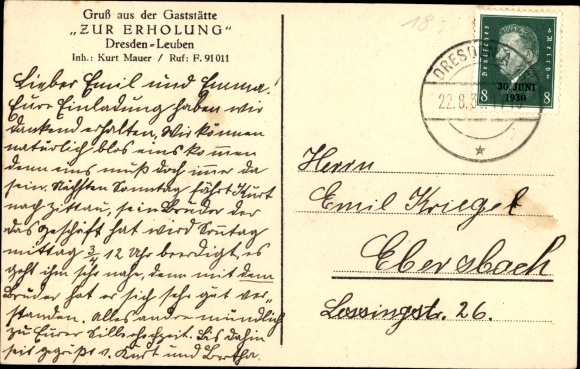 Gruß aus der Gaststätte
"ZUR ERHOLUNG"
Dresden-Leuben
Inh.: Kurt Mauer / Ruf: F. 91011
Lieber Emil und Emma!
Eure Einladung haben wir
dankend erhalten, Wir können
natürlich blos eins kommen
denn uns muß doch imer da
sein. Nächsten Sonntag fährt Kurt
nach Zittau, sein Bruder der
das Geschäft hat wird Sonntag
mittag 3/4 12 Uhr beerdigt, es
geht ihm sehr nahe, denn mit dem
Bruder hat er sich sehr gut ver-
standen. Alles andre mündlich
zu Eurer Silberhochzeit. Bis dahin
seit gegrüßt v. Kurt und Bertha.
18
DRESDEN A
22.8.3
Deutsches Reich
30. JUNI
1930
8 8
Herrn
Emil Krieget
Ebersbach
Lessingstr. 26.